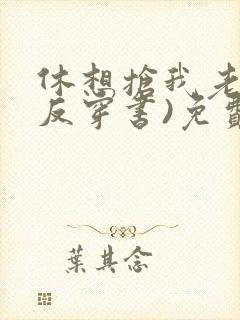 休想搶我老
反穿書)免費
葉其念